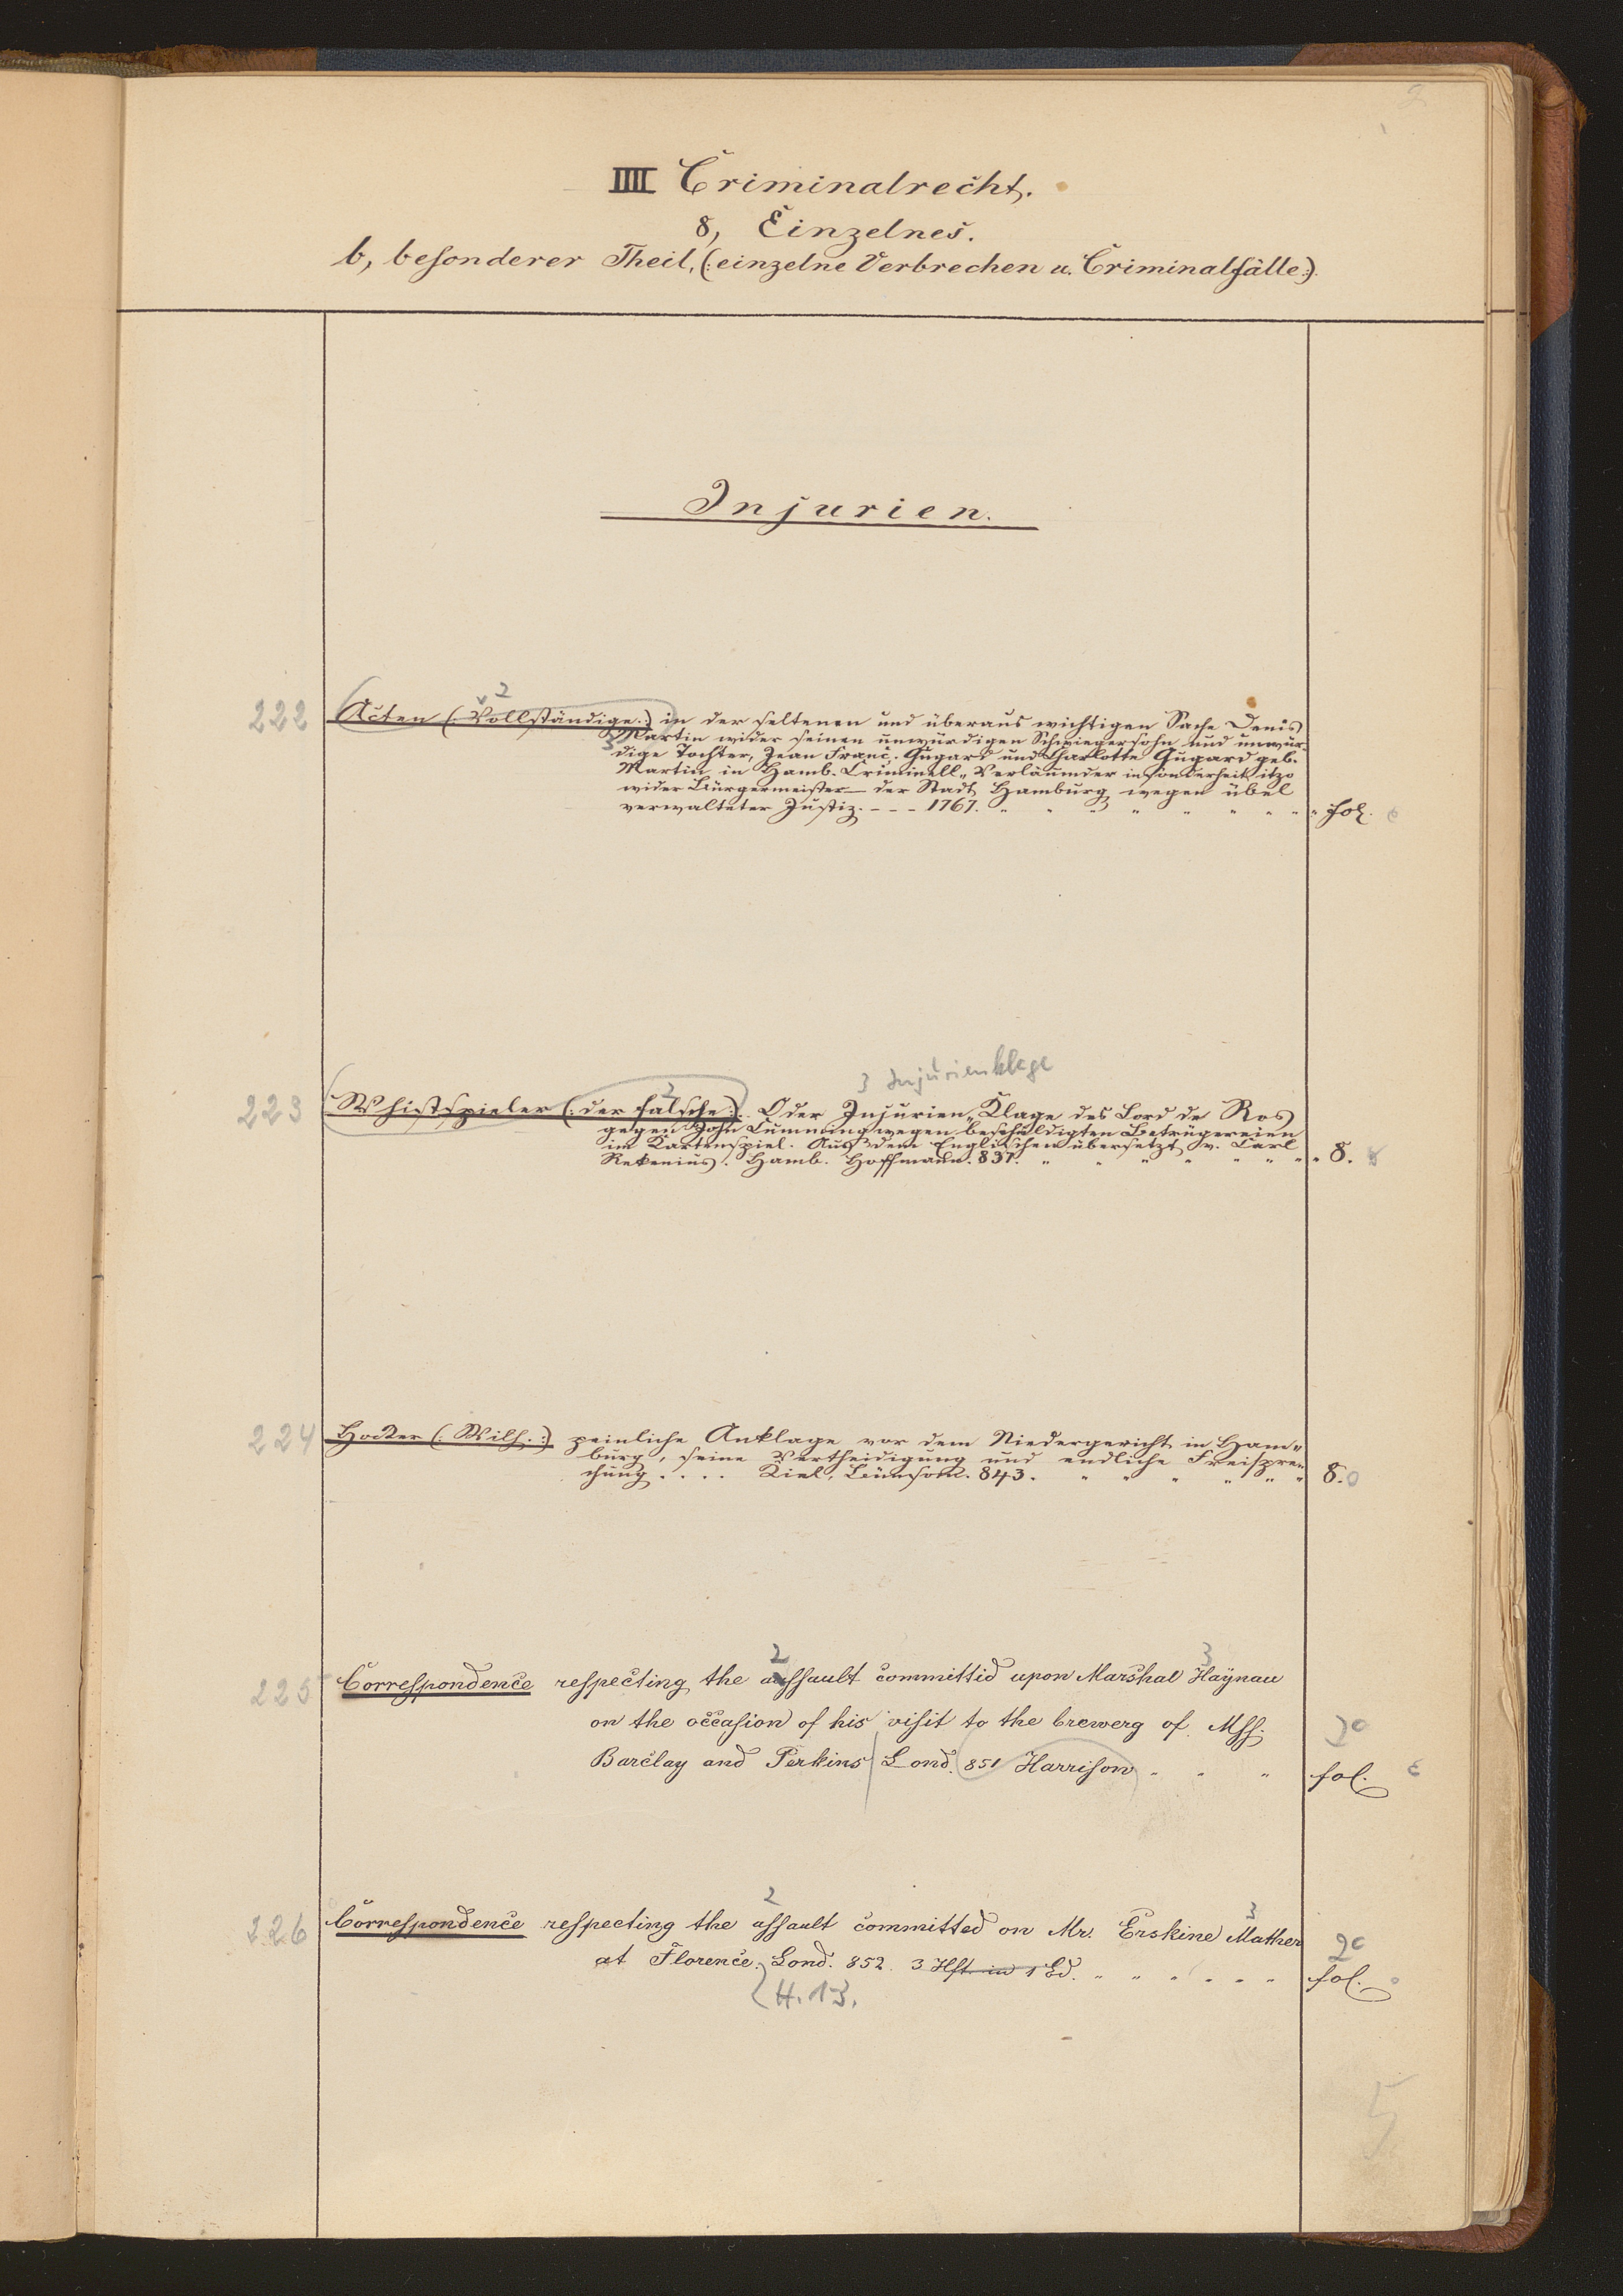 2
IIII Criminalrecht.
8, Einzelnes.
b, besonderer Theil, (: einzelne Verbrechen u. Criminalfälle :).
Injurien.
2
222 Acten (: Vollständige :) in der seltenen und überaus wichtigen Sache Denis
3 Martin wider seinen unwürdigen Schwiegersohn und unwür-
dige Tochter, Jean Franc. Gugard und Charlotte Gugard geb.
Martin in Hamb. Criminell. Verläumder insonderheit itzo
wider Bürgermeister der Stadt Hamburg wegen übel
verwalteter Justiz. - - - 1767. " " " " " " " " fol.
3 Injurienklage
2
223 Whistspieler (: der falsche :). Oder Injurien-Klage des Lord de Ros
gegen John Cumming wegen beschuldigten Betrügereien
im Kartenspiel. Aus dem Englischen übersetzt v. Carl
Rekenius. Hamb. Hoffmann. 837. " " " " " " " " 8. 8
224 Hocker (: Wilh. :) peinliche Anklage vor dem Niedergericht in Ham-
burg, seine Vertheidigung und endliche Freispre-
chung . . . . Kiel, Bünsow. 843. " " " " " " 8. 0
2 3
225 Correspondence respecting the assault committid upon Marshal Haÿnau
on the occasion of his visit to the brewerg of Mss. 20
Barclay and Perkins Lond. 851 Harrison " " " fol.
2 3
226 Correspondence respecting the assault committed on Mr. Erskine Mather 20
at Florence. Lond. 852. 3 Hft. in 1 Bd. " " " " " " fol.
H. 13.
5